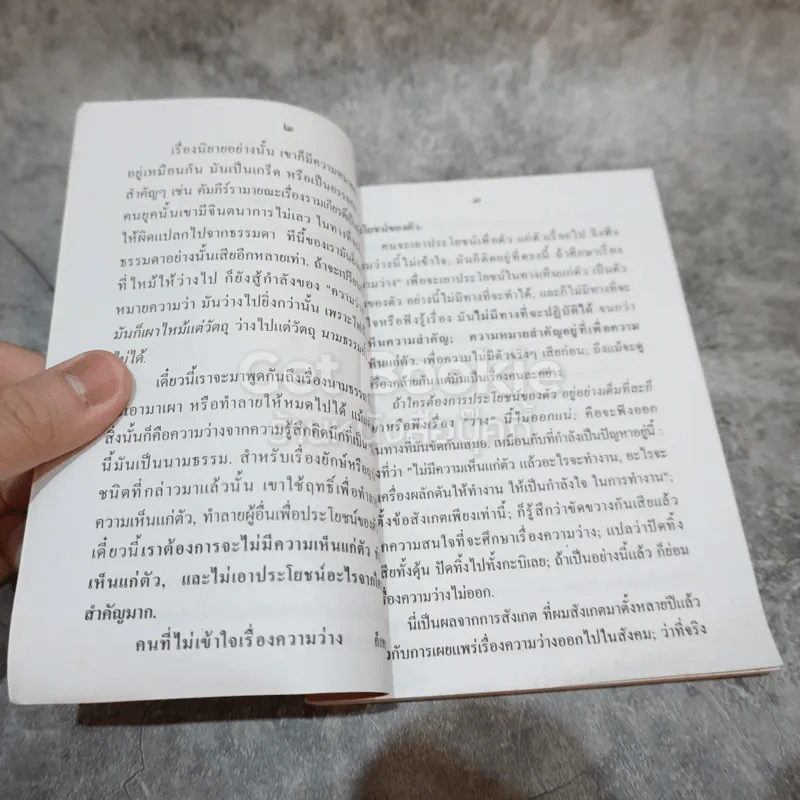 ๒
เรื่องนิยายอย่างนั้น เขาก็มีความหมาย
อยู่เหมือนกัน มันเป็นเกร็ด หรือเป็น
สำคัญๆ เช่น คัมภีร์รามายณะเรื่องรามเกียรติ์
คนยุคนั้นเขามีจินตนาการไม่เลว ในทางที่
ให้ผิดแปลกไปจากธรรมดา ทีนี้ของเรามัน
ธรรมดาอย่างนั้นเสียอีกหลายเท่า. ถ้าจะเปรียบ
ที่ไหม้ให้ว่างไป ก็ยังสู้กำลังของ "ความ
หมายความว่า มันว่างไปยิ่งกว่านั้น เพราะ
มันก็เผาไหม้แต่วัตถุ ว่างไปแต่วัตถุ นามธรรม
ไม่ได้.
เดี๋ยวนี้เราจะมาพูดกันถึงเรื่องนามธรรม
เอามาเผา หรือทำลายให้หมดไปได้ แม้
สิ่งนั้นก็คือความว่างจากความรู้สึกคิดนึกที่เป็น
นี้มันเป็นนามธรรม. สำหรับเรื่องยักษ์หรือ
ชนิดที่กล่าวมาแล้วนั้น เขาใช้ฤทธิ์เพื่อทำลาย
ความเห็นแก่ตัว, ทำลายผู้อื่นเพื่อประโยชน์ของ
เดี๋ยวนี้เราต้องการจะไม่มีความเห็นแก่ตัว
เห็นแก่ตัว, และไม่เอาประโยชน์อะไรจาก
สำคัญมาก.
คนที่ไม่เข้าใจเรื่องความว่าง
๓
โยชน์ของตัว.
คนจะเอาประโยชน์เพื่อตัว แก่ตัวเรื่อยไป จึงฟัง
ว่างนี้ไม่เข้าใจ, มันก็ติดอยู่ที่ตรงนี้ ถ้าศึกษาเรื่อง
ว่าง" เพื่อจะเอาประโยชน์ในทางเห็นแก่ตัว เป็นตัว
ของตัว อย่างนี้ไม่มีทางที่จะทำได้, และก็ไม่มีทางที่จะ
ใจหรือฟังรู้เรื่อง มันไม่มีทางที่จะปฏิบัติได้ จนกว่า
ห็นความสำคัญ; ความหมายสำคัญอยู่ที่เพื่อความ
เห็นแก่ตัว. เพื่อความไม่มีตัวจริงๆ เสียก่อน, ถึงแม้จะดู
เรื่องคล้ายกัน แต่มันเป็นเรื่องคนละอย่าง.
ถ้าใครต้องการประโยชน์ของตัว อยู่อย่างเต็มที่ละก็
หรือฟังเรื่อง "ว่าง" นี้ไม่ออกแน่; คือจะฟังออก
ทางที่มันขัดกันเสมอ. เหมือนกับที่กำลังเป็นปัญหาอยู่นี้ :
ที่ว่า "ไม่มีความเห็นแก่ตัว แล้วอะไรจะทำงาน, อะไรจะ
เครื่องผลักดันให้ทำงาน ให้เป็นกำลังใจ ในการทำงาน";
ตั้งข้อสังเกตเพียงเท่านี้; ก็รู้สึกว่าขัดขวางกันเสียแล้ว
กความสนใจที่จะศึกษาเรื่องความว่าง; แปลว่าปัดทิ้ง
สียทั้งดุ้น ปัดทิ้งไปทั้งกะบิเลย; ถ้าเป็นอย่างนี้แล้ว ก็ย่อม
รื่องความว่างไม่ออก.
นี่เป็นผลจากการสังเกต ที่ผมสังเกตมาตั้งหลายปีแล้ว
วกับการเผยแพร่เรื่องความว่างออกไปในสังคม; ว่าที่จริง
Get Bookie